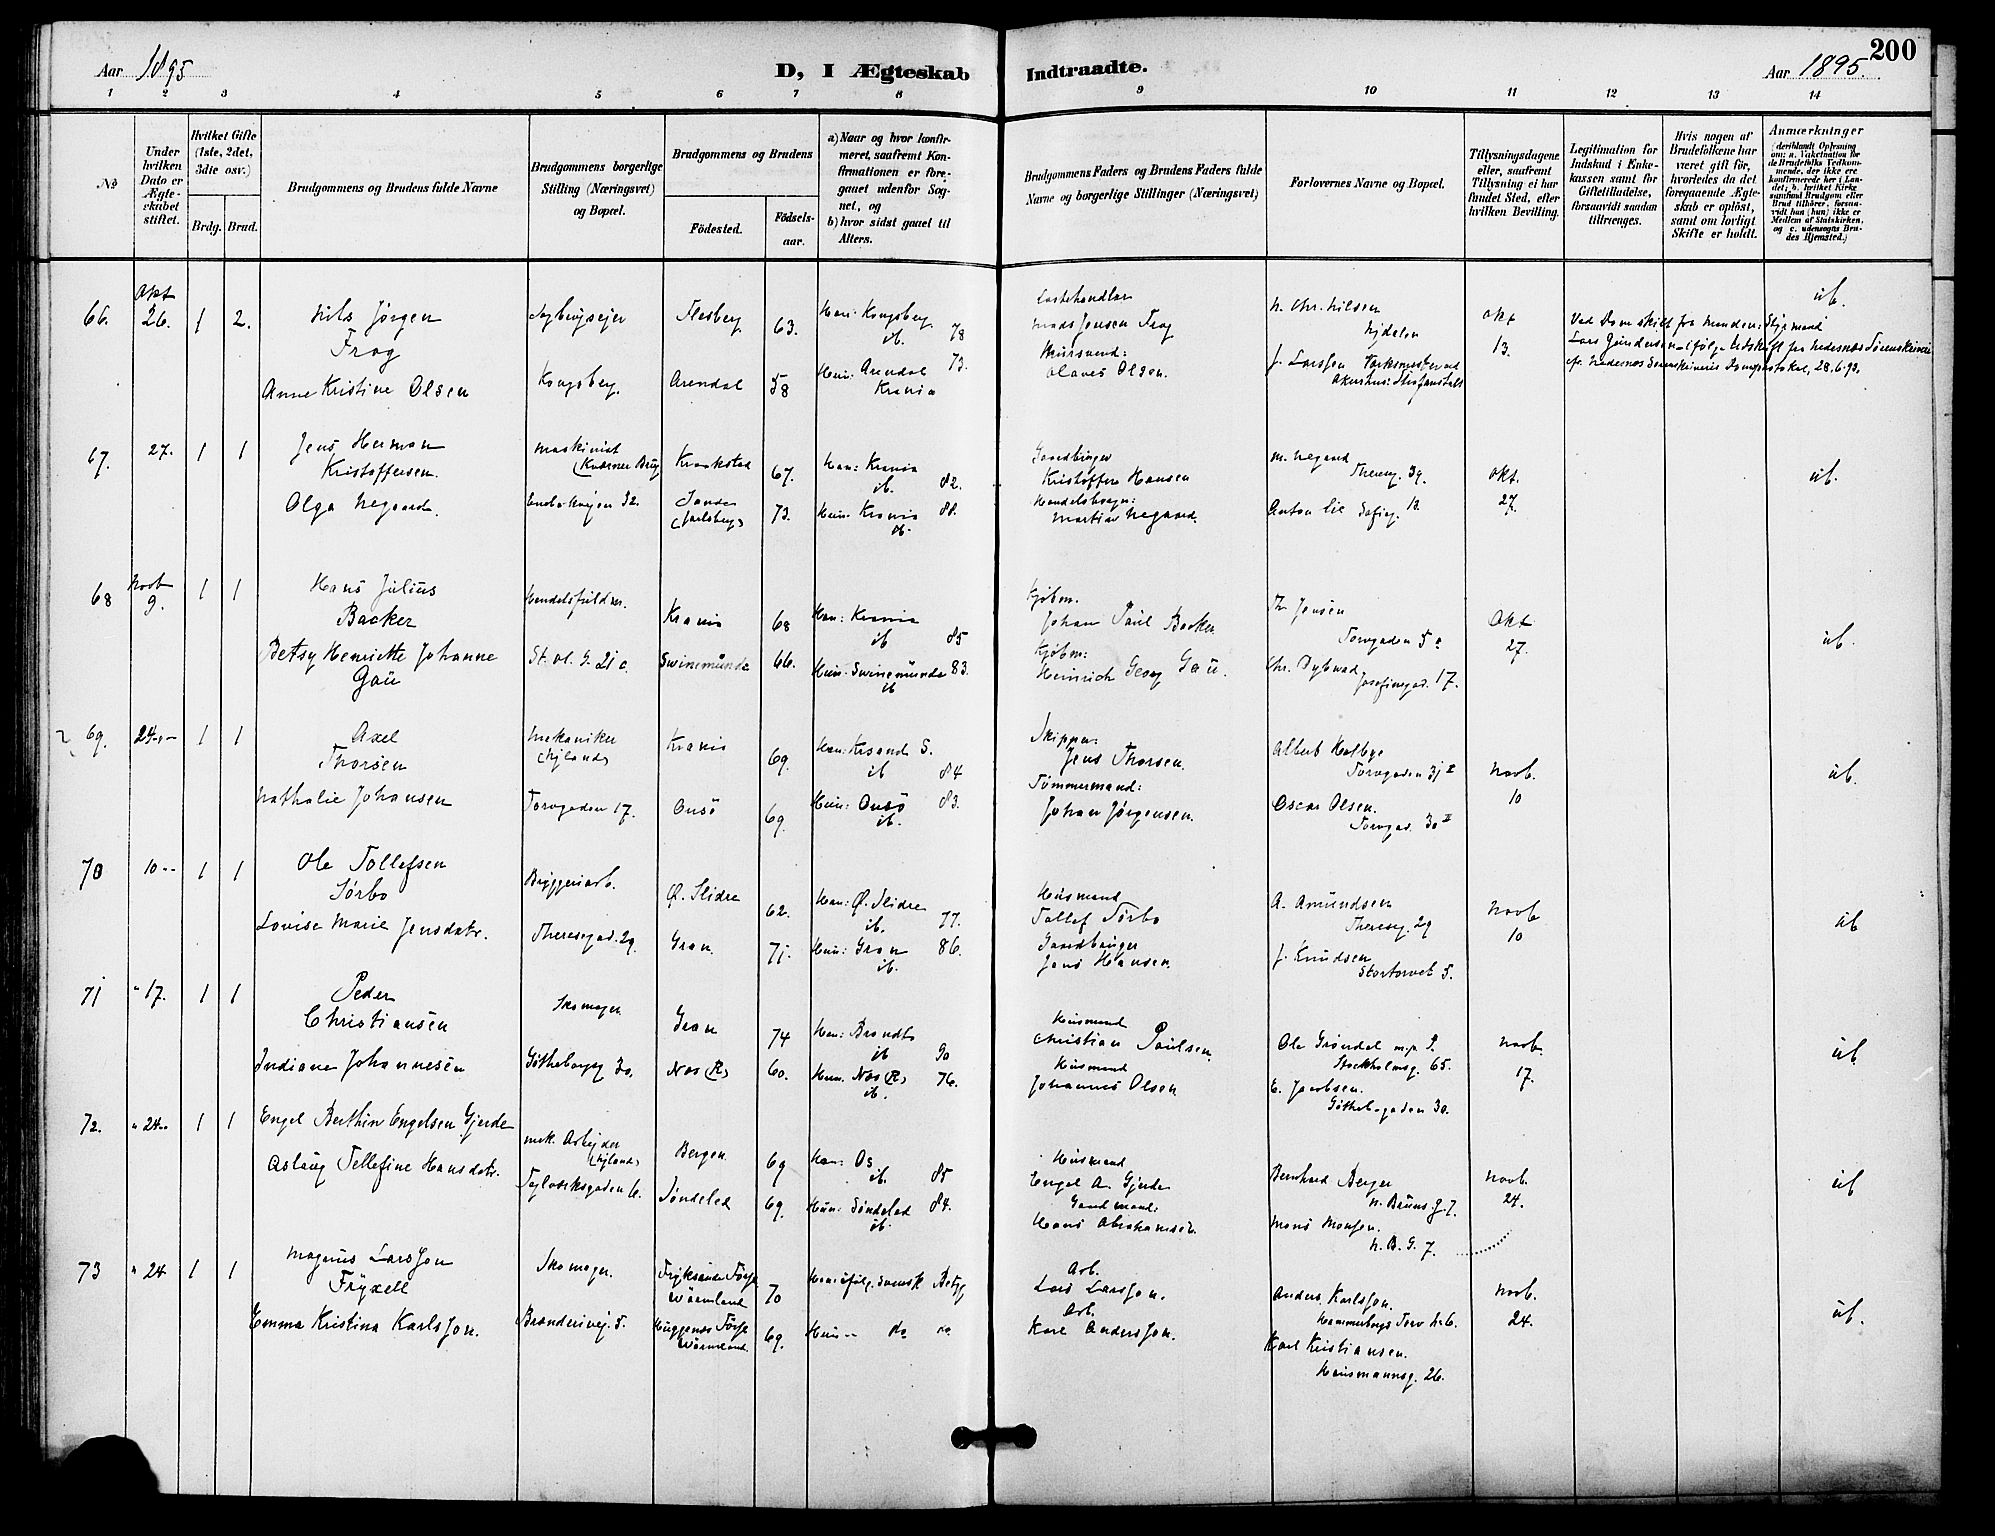 200
Aar 1895
D, I Ægteskab Indtraadte.
Aar 1895.
1 2 3 4 5 6 7 8 9 10 11 12 13 14
No
Under hvilken Dato er Ægteskabet stiftet.
Hvilket Gifte (1ste, 2det, 3die osv.)
Brdg. Brud.
Brudgommens og Brudens fulde Navne
Brudgommens borgerlige Stilling (Næringsvei) og Bopæl.
Brudgommens og Brudens
Fødested.
Fødselsaar.
a) Naar og hvor konfirmeret, saafremt Konfirmationen er foregaaet udenfor Sognet, og
b) hvor sidst gaaet til Alters.
Brudgommens Faders og Brudens Faders fulde Navne og borgerlige Stillinger (Næringsvei)
Forlovernes Navne og Bopæl.
Tillysningsdagene eller, saafremt Tillysning ei har fundet Sted, efter hvilken Bevilling.
Legitimation for Indskud i Enkekassen samt for Giftetilladelse, forsaavidt saadan tiltrænges.
Hvis nogen af Brudefolkene har været gift før, hvorledes da det foregaaende Ægteskab er opløst, samt om lovligt Skifte er holdt.
Anmærkninger
(deriblandt Oplysning om: a. Vakcination for de Brudefolks Vedkommende, der ikke ere konfirmerede her i Landet; b. hvilket Kirkesamfund Brudgom eller Brud tilhører, forsaavidt han (hun) ikke er Medlem af Statskirken, og c. udensogns Brudes Hjemsted.)
66. Okt 26. 1 2.
Nils Jörgen
Frog
Anne Kristine Olsen
Kongsberg.
Flesberg 63.
Arendal 58
Han: Kongsberg 78
ib.
Hun: Arendal 73.
Krania
Mads Jensen Frog
Olaves Olsen.
N. Chr. Nilsen
J. Larssen
Okt
13.
ib.
67. 27. 1 1
Jens Herman
Kristoffersen.
Olga Negaard.
Maskinist
(Kværner Brug
Kraakstad 67.
Sande
(Jarlsberg) 73.
Han: Krania 82.
ib.
Hun: Krania 88.
ib.
Gaardbruger
Kristoffer Hansen
Martias Negaard.
M. Negaard
Thereseg. 39.
Anton Lie Sofieg. 13.
Okt.
27.
ib.
68 Novb 9. 1 1
Hans Julius
Backer
Betsy Henriette Johanne
Gaü
Handelsfuldm.
St. Ol. G. 21 c.
Krania 68
Swinemünde 66.
Han: Krania 85
ib
Hun: Swinemünde 83.
ib
Kjøbm.
Johan Paul Backer
Kjøbm:
Heinrich Georg Gaü.
Th. Jensen
Torvgaden 5 c
Chr. Dybwad
Josefinegad. 17.
Okt
27.
ib.
69. 24 1 1
Axel
Thorsen
Nathalie Johansen
Mekaniker
(Nyland)
Torvgaden 17.
Krania 69.
Onsö 69.
Han: Krsand S. 84
ib
Hun: Onsö 83.
ib.
Skipper:
Jens Thorsen.
Tömmermand:
Johan Jörgensen.
Albert Holbye
Torvgaden 31 II
Oscar Olsen.
Torvgad. 30 II
Novb.
10
ib.
70 10 1 1
Ole Tollefsen
Sørbo
Lovise Marie Jensdatr.
Bryggeriarb.
Theresegad. 29.
Ø. Slidre 62.
Gran. 71.
Han: Ø. Slidre 77.
ib.
Hun: Gran 86.
ib.
Husmand
Tollef Sørbo
Gaardbruger
Jens Hansen.
A. Amundsen
Thereseg. 29
J. Knudsen
Stortorvet 5.
Novb
10
ib
71 " 17. 1 1
Peder
Christiansen
Indiane Johannesen
Skomager
Götheborgg 30.
Gran 74
Næs (R) 60.
Han: Brandbu 90
ib
Hun: Næs (R) 76.
ib.
Husmand
Christian Paulsen.
Husmand
Johannes Olsen
Ole Grøndal
Stockholmsg. 65.
E. Jacobsen.
Götheb-gaden 30.
Novb.
17.
ib
72. " 24 1 1
Engel Berthin Engelsen Gjerde
Aslaug Tellefine Hansdatr.
mek. Arbejder
(Nyland)
Bergen 69
Søndeled 69.
Han: Os. 85
ib.
Hun: Søndeled 84.
ib.
Husmand
Engel A. Gjerde
Gaardmand:
Hans Abrahamsen.
Bernhard Berger
N. Bruns. G. 7.
Mons Monsen.
N. B. G. 7.
Novb.
24.
ib
73 " 24 1 1
Magnus Larsson
Fryxell
Emma Kristina Karlsson.
Skomager.
Branderivej. 5.
Fryksände
Wärmland 70
Wärmland. 69.
Hun
Arb.
Lars Larsson.
Arb.
Karl Andersson.
Anders Karlsson.
Hammerborgs Torv
Karl Kristiansen.
Hausmannsg. 26.
Novb.
24.
ib.